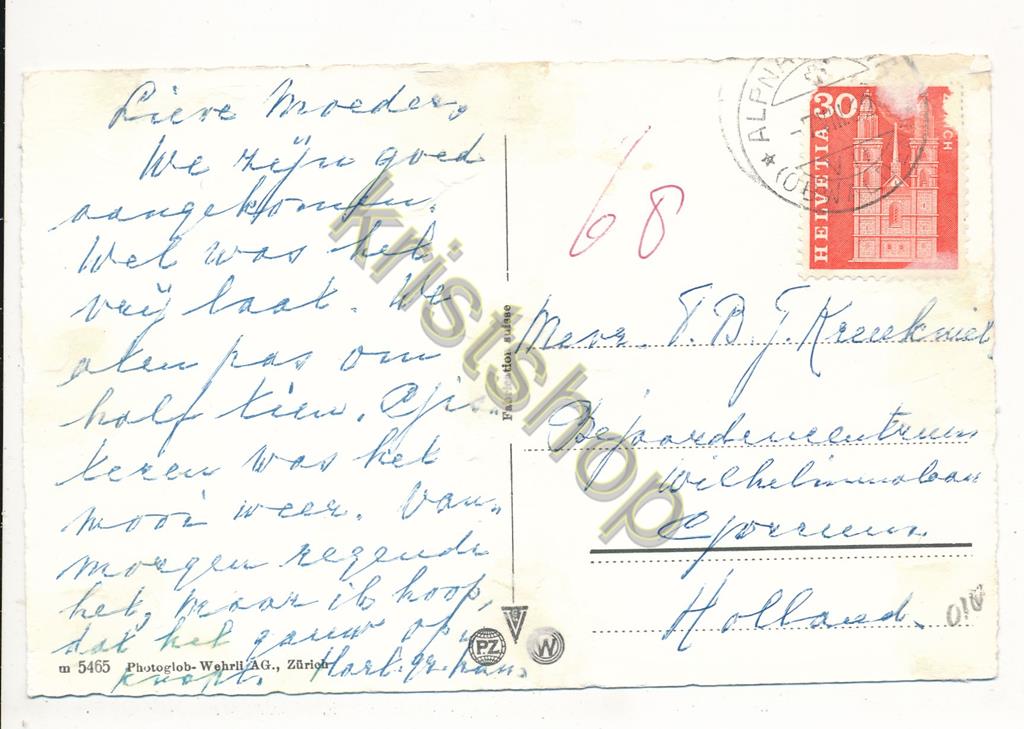 Lieve Moeder,
We zijn goed
aangekomen.
Wel was het
vrij laat. We
aten pas om
half tien. Gis-
teren was het
mooi weer. Van-
morgen regende
het, maar ik hoop,
dat het gauw op-
knapt. Hart. gr.
m 5465 Photoglob-Wehrli AG., Zürich
Fabrication suisse
PZ
W
ALPNA
(OBW)
30
HELVETIA
68
Mevr. T. B. J.
Bejaardencentrum
Wilhelminalaan
Holland.
010
kristshop